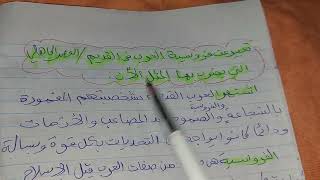 تعبير عن فروسية العرب في القديم / العصر الجاهلي
التي يضرب بها المثل الآن
اشتهر العرب القدماء بشخصيتهم العمودة
والفروسية
بالشجاعة والصمود المصاعب والحزمات
ودائما كانوا يواجهون التحديات بكل قوة وبسالة
الفروسية هي من صفات العرب قبل الإسلام